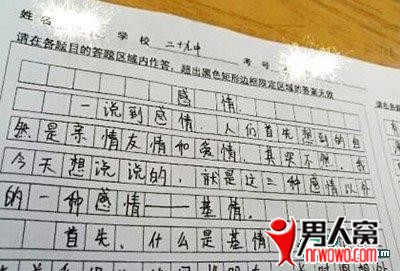 姓名 学校 二十九中 考号
请在各题目的答题区域内作答,超出黑色矩形边框限定区域的答案无效
请在各题
感情.
一说到感情.人们首先想到的自
然是亲情友情和爱情.其实不然,我
今天想说说的,就是这三种感情以外
的一种感情——基情.
首先,什么是基情
男人窝
nrwowo.com